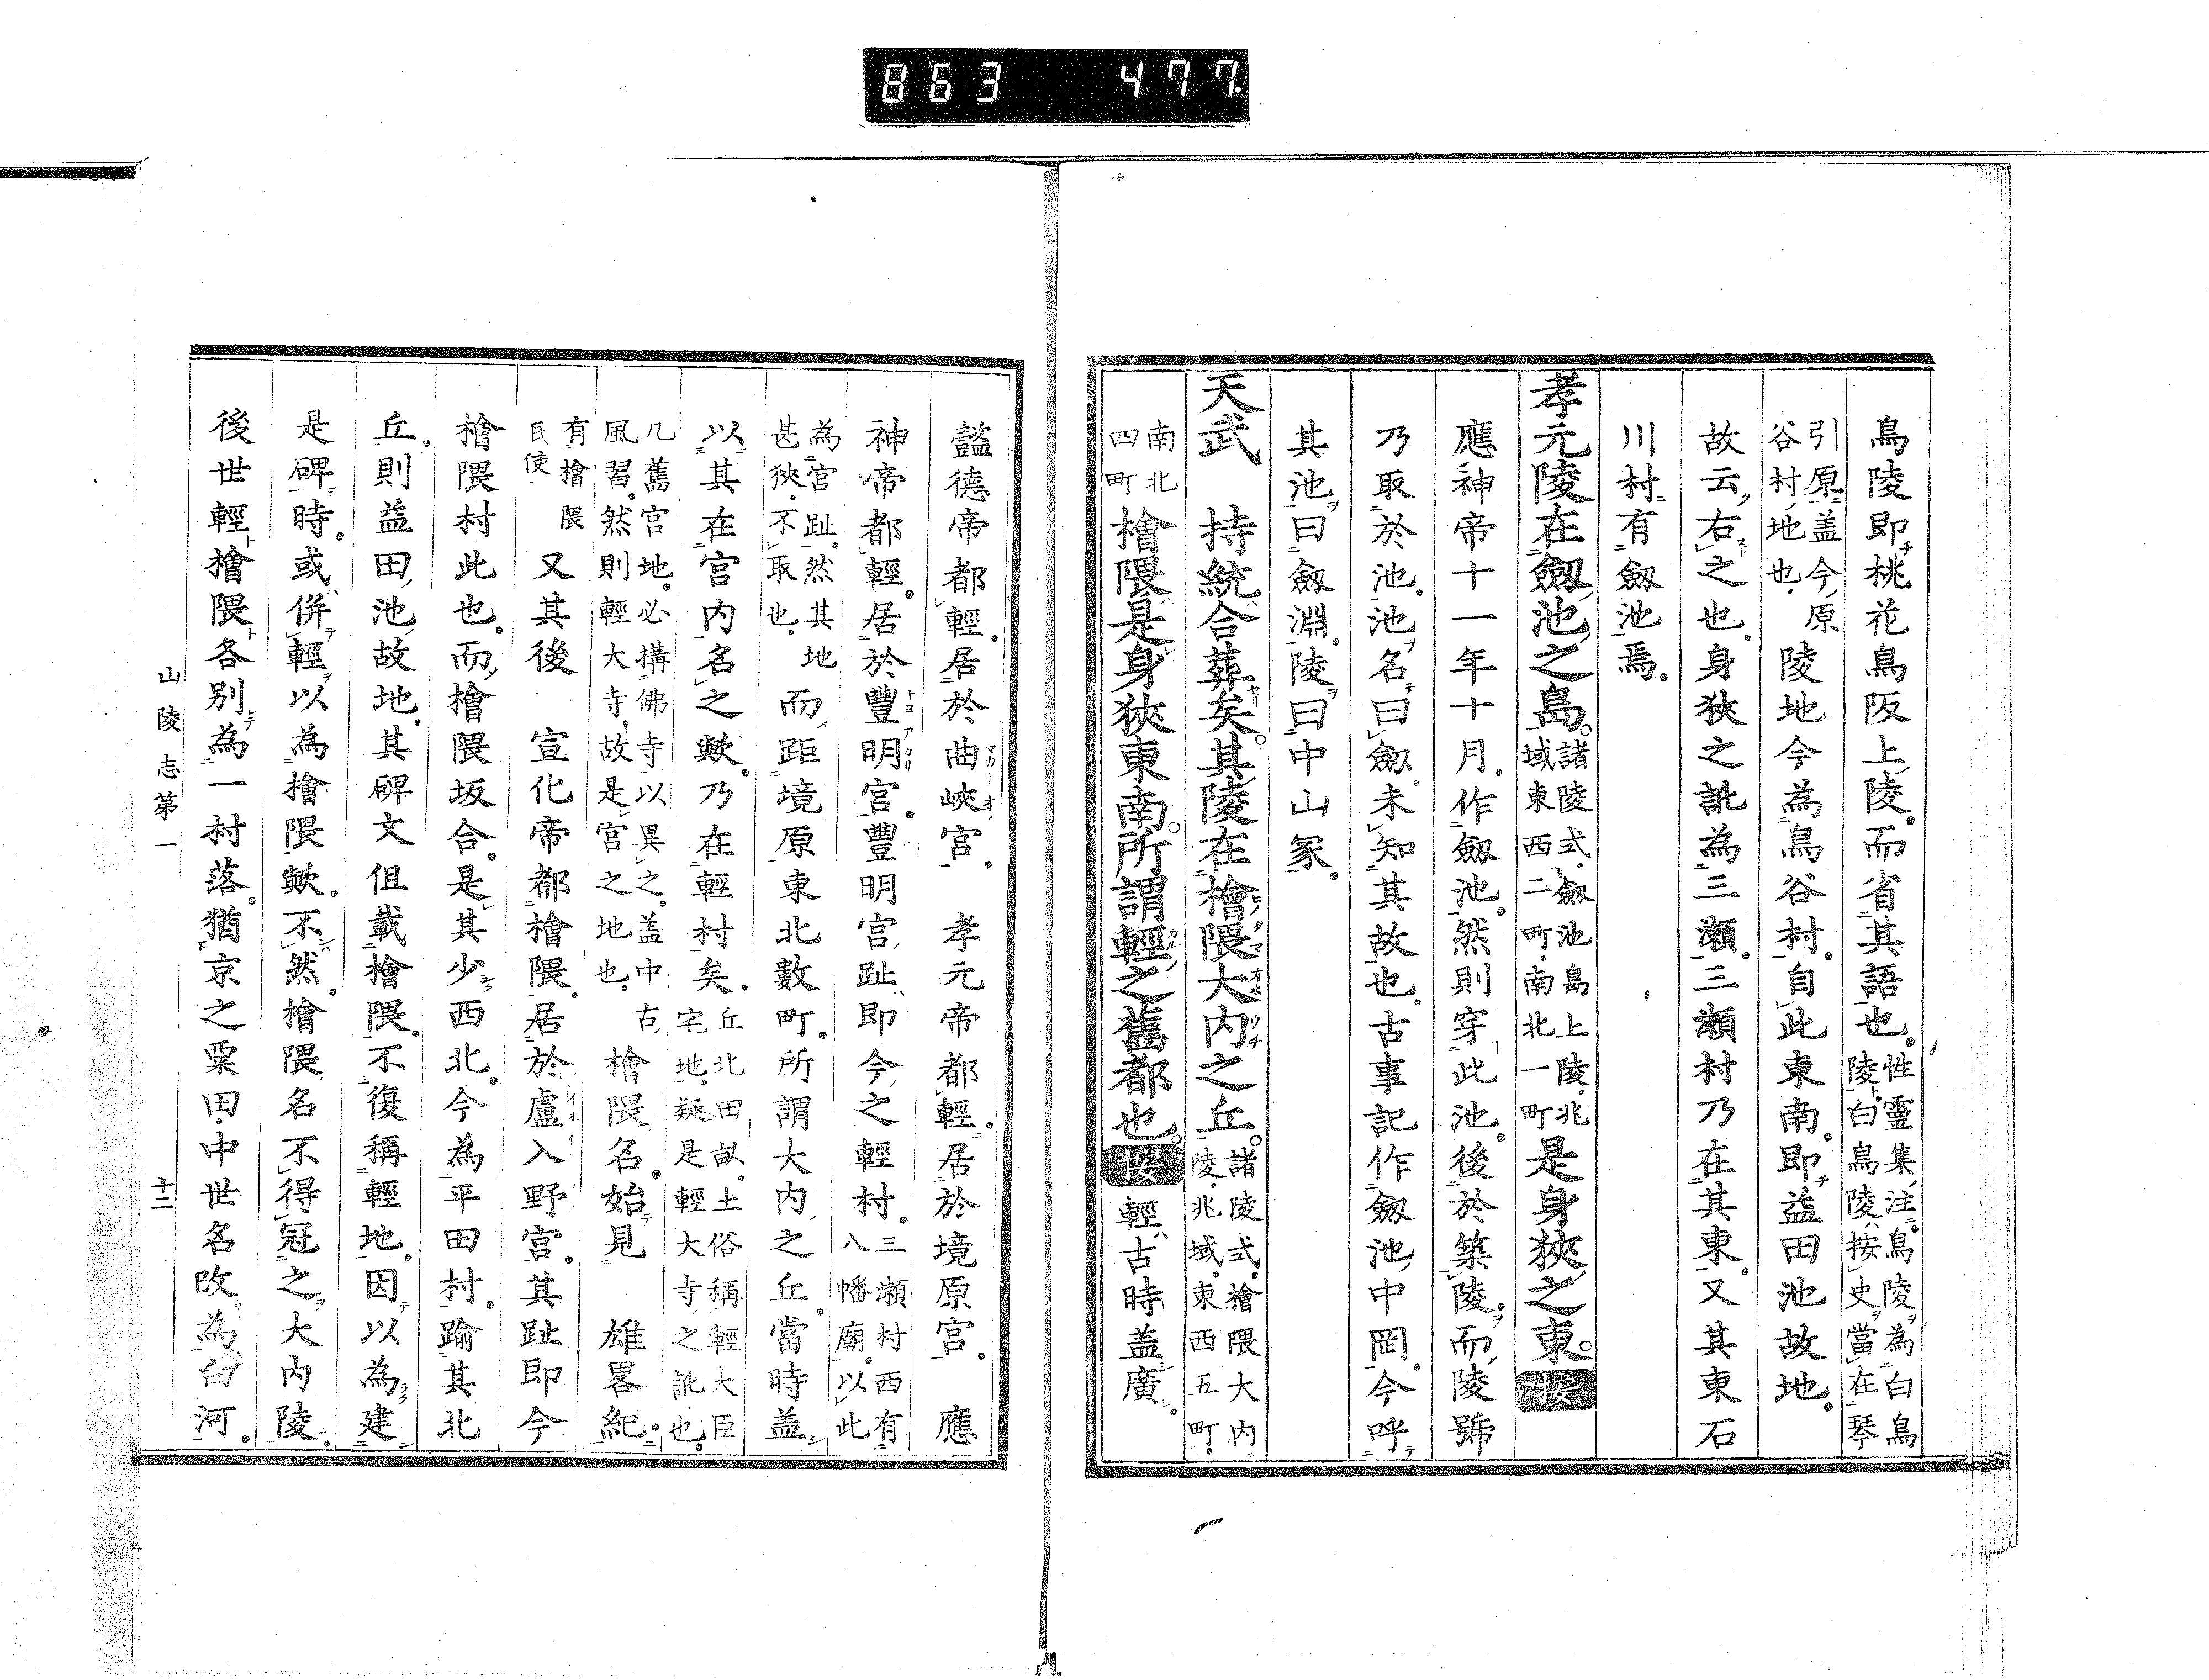 863 477
鳥陵即桃花鳥阪上陵而省其語也性靈集注鳥陵為白鳥陵白鳥陵按史當在琴
引原盖今原谷村地也陵地今為鳥谷村自此東南即益田池故地
故云右之也身狹之訛為三瀬三瀬村乃在其東又其東石
川村有劔池焉
孝元陵在劔池之島諸陵式劔池島上陵兆域東西二町南北一町是身狹之東按
應神帝十一年十月作劔池然則穿此池後於築陵而陵號
乃取於池池名曰劔未知其故也古事記作劔池中岡今呼
其池曰劔淵陵曰中山冢
天武　持統合葬矣其陵在檜隈大内之丘諸陵式檜隈大内陵兆域東西五町
南北四町檜隈是身狹東南所謂輕之舊都也按輕古時盖廣
懿德帝都輕居於曲峽宮　孝元帝都輕居於境原宮　應
神帝都輕居於豐明宮豐明宮趾即今之輕村三瀬村西有八幡廟以此
為宮趾然其地甚狹不取也而距境原東北數町所謂大内之丘當時盖
以其在宮内名之歟乃在輕村矣丘北田畝土俗稱輕大臣宅地疑是輕大寺之訛也
凡舊宮地必搆佛寺以異之盖中古風習然則輕大寺故是宮之地也檜隈名始見　雄畧紀
有檜隈民使又其後　宣化帝都檜隈居於盧入野宮其趾即今
檜隈村此也而檜隈坂合是其少西北今為平田村踰其北
丘則益田池故地其碑文但載檜隈不復稱輕地因以為建
是碑時或併輕以為檜隈歟不然檜隈名不得冠之大内陵
後世輕檜隈各別為一村落猶京之粟田中世名改為白河
山陵志第一　十二